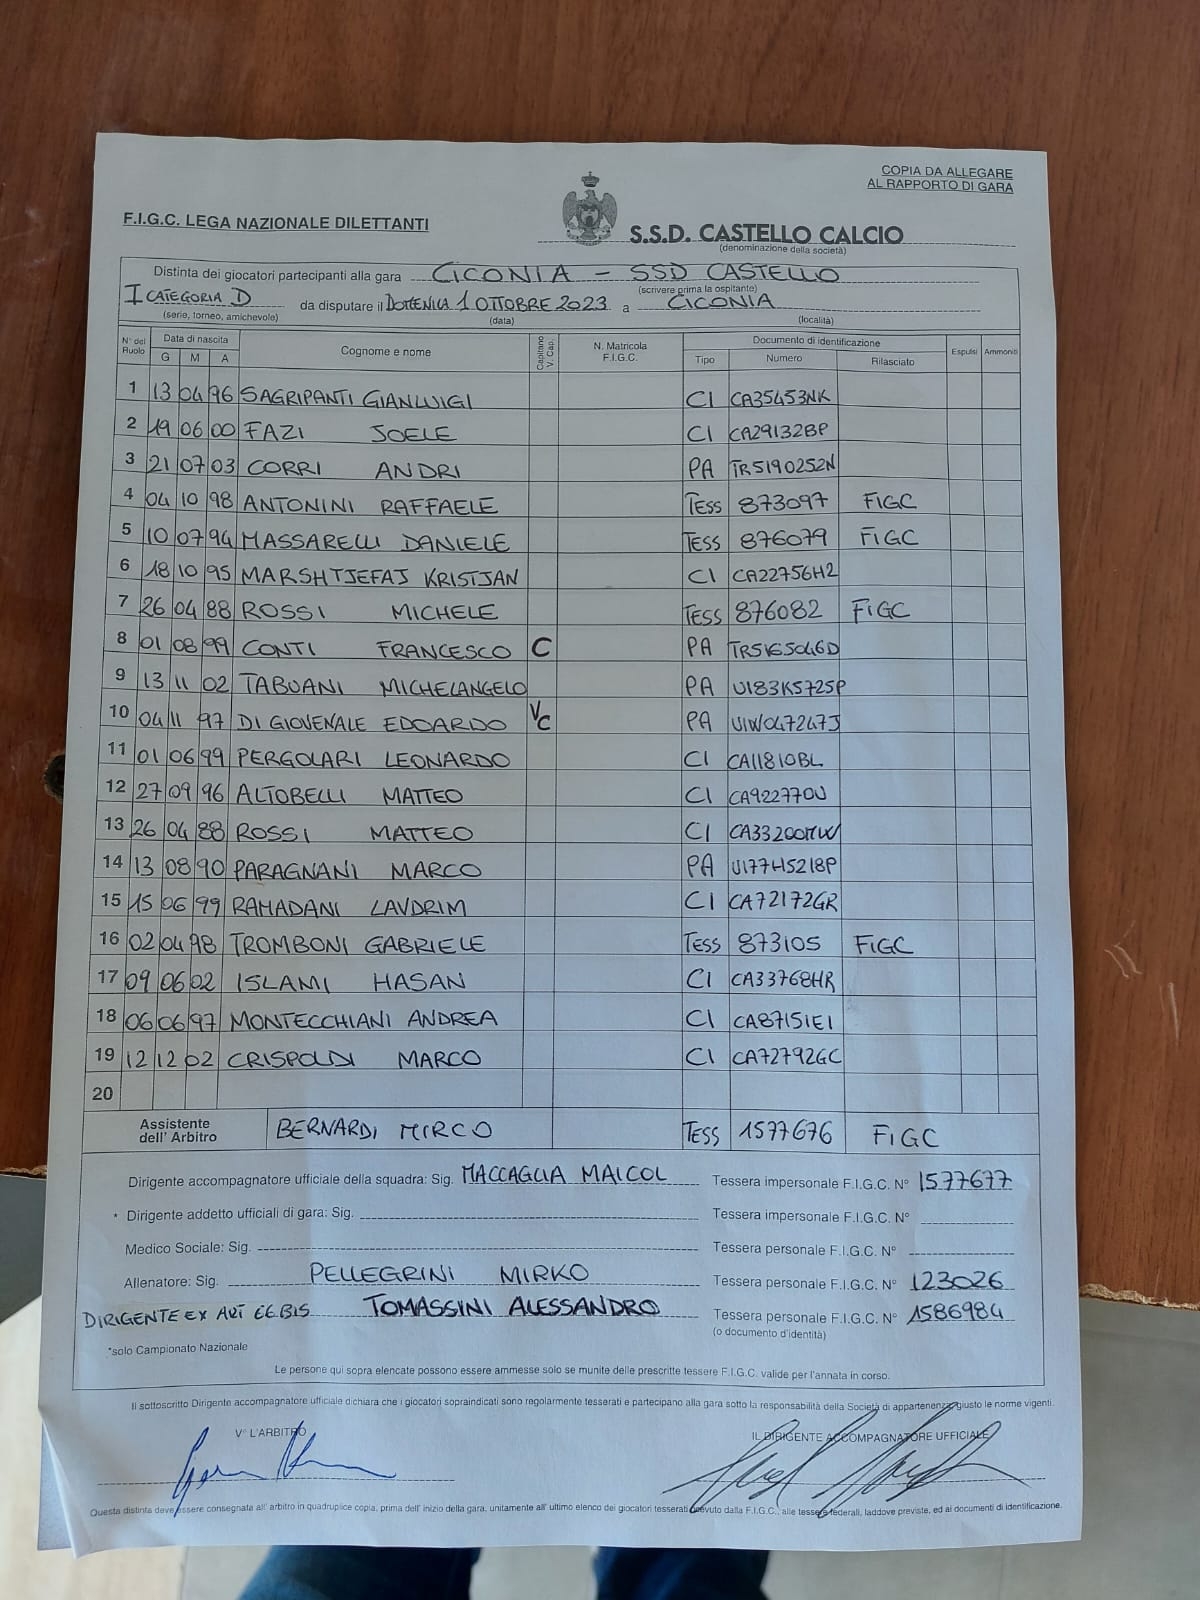 COPIA DA ALLEGARE
AL RAPPORTO DI GARA
F.I.G.C. LEGA NAZIONALE DILETTANTI
S.S.D. CASTELLO CALCIO
(denominazione della società)
Distinta dei giocatori partecipanti alla gara CICONIA - SSD CASTELLO
(scrivere prima la ospitante)
I CATEGORIA D da disputare il DOMENICA 1 OTTOBRE 2023 a CICONIA
(serie, torneo, amichevole) (data) (località)
N° del Ruolo Data di nascita G M A Cognome e nome Capitano V. Cap. N. Matricola F.I.G.C. Documento di identificazione Tipo Numero Rilasciato Espulsi Ammoniti
1 13 04 96 SAGRIPANTI GIANLUIGI CI CA35453NK
2 19 06 00 FAZI JOELE CI CA29132BP
3 21 07 03 CORRI ANDRI PA TR5190252N
4 04 10 98 ANTONINI RAFFAELE TESS 873097 FIGC
5 10 07 94 MASSARELLI DANIELE TESS 876079 FIGC
6 18 10 95 MARSHTJEFAJ KRISTJAN CI CA22756HZ
7 26 04 88 ROSSI MICHELE TESS 876082 FIGC
8 01 08 99 CONTI FRANCESCO C PA TR5165046D
9 13 11 02 TABUANI MICHELANGELO PA U183K5725P
10 04 11 97 DI GIOVENALE EDOARDO VC PA U1W047247J
11 01 06 99 PERGOLARI LEONARDO CI CA11810BL
12 27 09 96 ALTOBELLI MATTEO CI CA92277OU
13 26 04 88 ROSSI MATTEO CI CA33200MW
14 13 08 90 PARAGNANI MARCO PA U177H5218P
15 15 06 99 RAMADANI LAVDRIM CI CA72172GR
16 02 04 98 TROMBONI GABRIELE TESS 873105 FIGC
17 09 06 02 ISLAMI HASAN CI CA33768HR
18 06 06 97 MONTECCHIANI ANDREA CI CA87151EI
19 12 12 02 CRISPOLDI MARCO CI CA72792GC
20
Assistente dell' Arbitro BERNARDI MIRCO TESS 1577676 FIGC
Dirigente accompagnatore ufficiale della squadra: Sig. MACCAGLIA MAICOL Tessera impersonale F.I.G.C. N° 1577677
* Dirigente addetto ufficiali di gara: Sig. Tessera impersonale F.I.G.C. N°
Medico Sociale: Sig. Tessera personale F.I.G.C. N°
Allenatore: Sig. PELLEGRINI MIRKO Tessera personale F.I.G.C. N° 123026
DIRIGENTE EX ART 66.BIS TOMASSINI ALESSANDRO Tessera personale F.I.G.C. N° 1586984
(o documento d'identità)
*solo Campionato Nazionale
Le persone qui sopra elencate possono essere ammesse solo se munite delle prescritte tessere F.I.G.C. valide per l'annata in corso.
Il sottoscritto Dirigente accompagnatore ufficiale dichiara che i giocatori sopraindicati sono regolarmente tesserati e partecipano alla gara sotto la responsabilità della Società di appartenenza, giusto le norme vigenti.
V° L'ARBITRO IL DIRIGENTE ACCOMPAGNATORE UFFICIALE
Questa distinta deve essere consegnata all' arbitro in quadruplice copia, prima dell' inizio della gara, unitamente all' ultimo elenco dei giocatori tesserati ricevuto dalla F.I.G.C., alle tessere federali, laddove previste, ed ai documenti di identificazione.